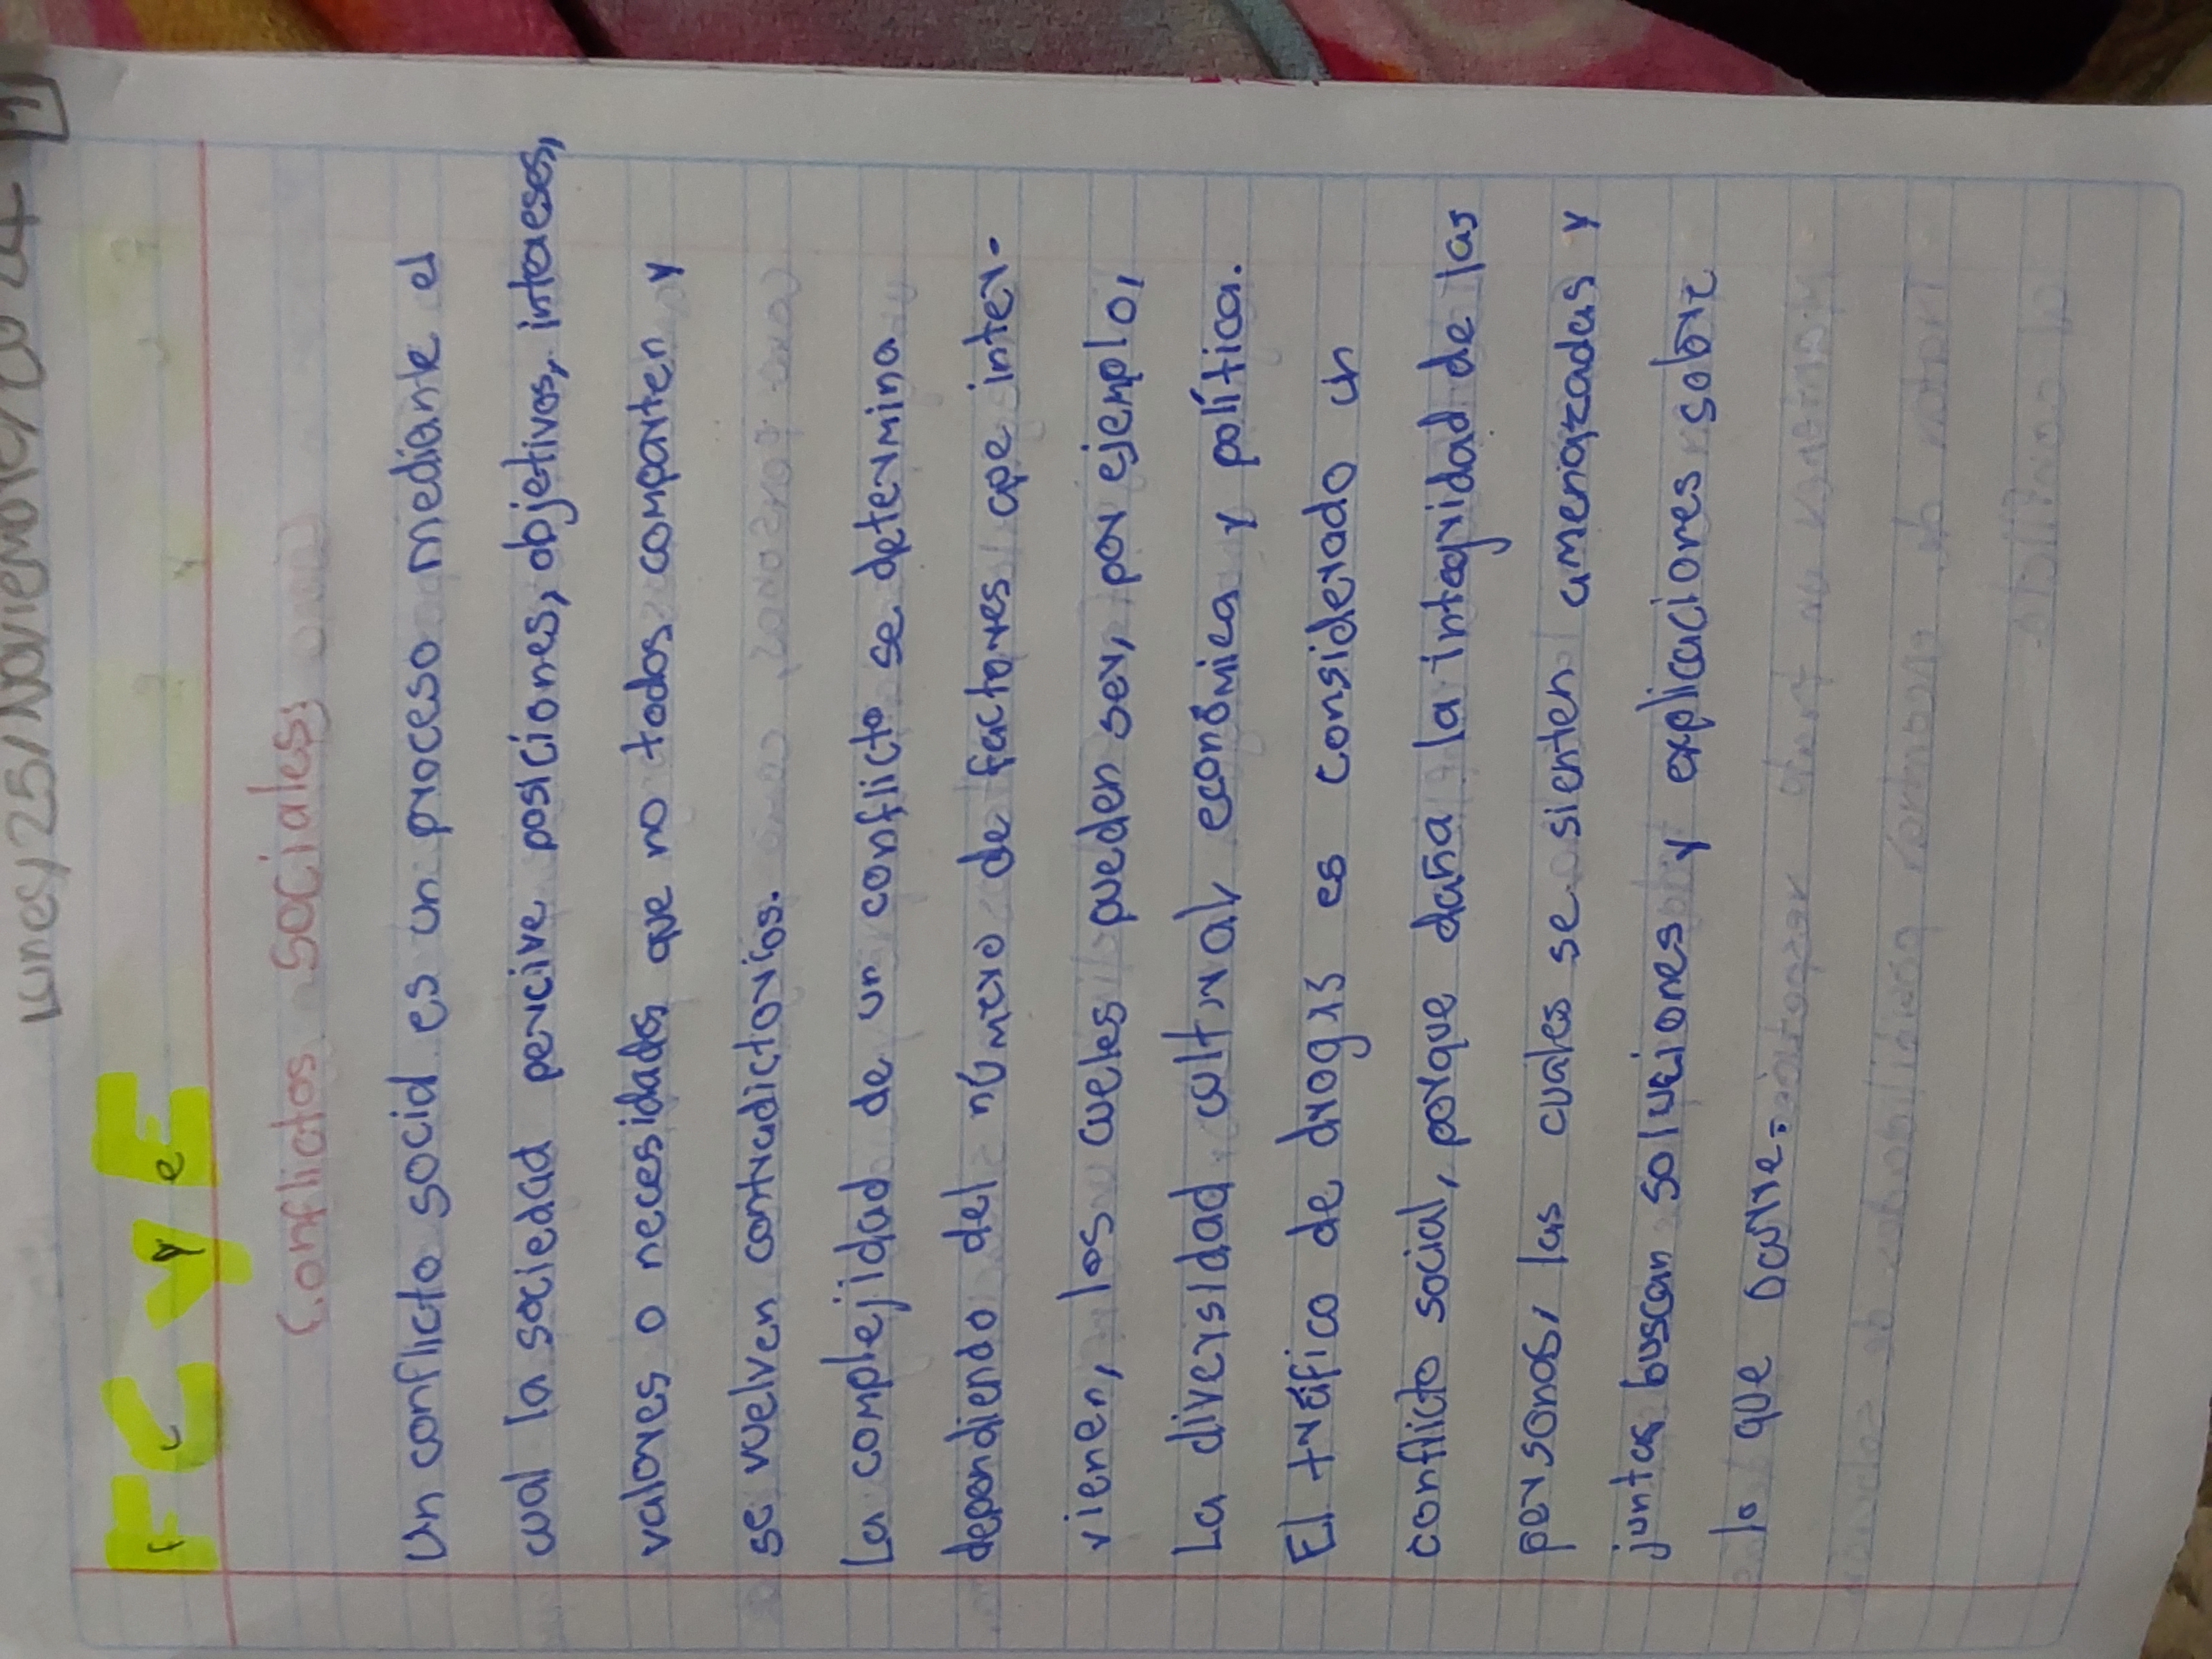 lunes/25/Noviembre/2024
FC y E
Conflictos sociales
Un conflicto social es un proceso mediante el
cual la sociedad percive posiciones, objetivos, intereses,
valores o necesidades que no todos comparten y
se vuelven contradictorios.
La complejidad de un conflicto se determina
dependiendo del número de factores que inter-
vienen, los cueles pueden ser, por ejemplo,
La diversidad cultural, económica y política.
El tráfico de drogas es considerado un
conflicto social, porque daña la integridad de las
personas, las cuales se sienten amenazadas y
juntas buscan soluciones y explicaciones sobre
lo que ocurre.